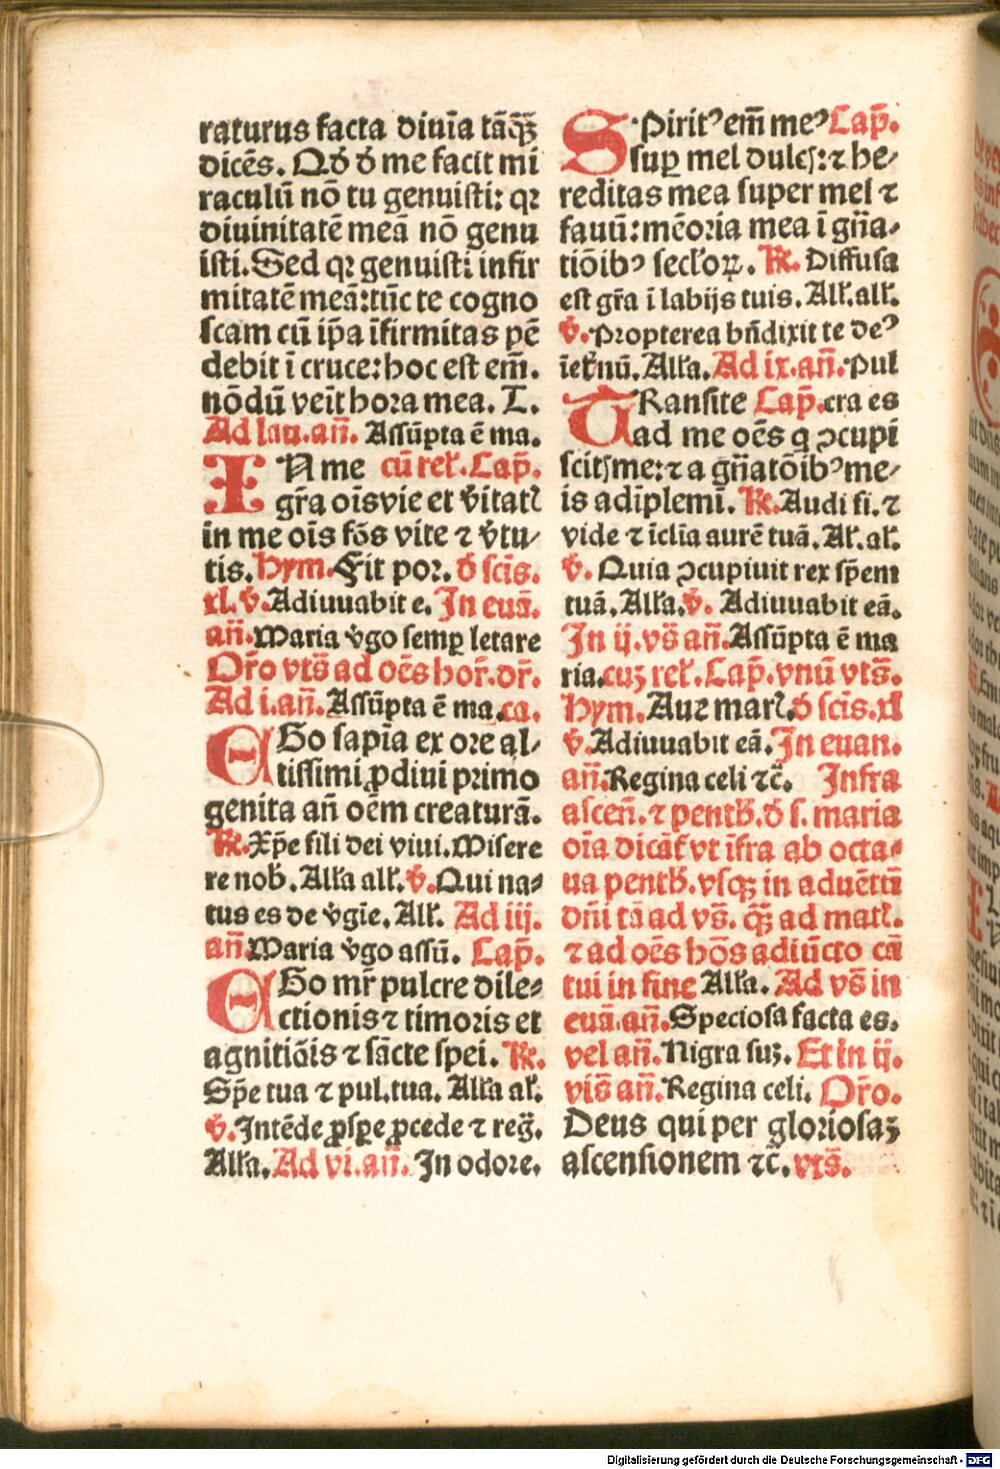 raturus facta diuīa tāqꝫ
dicēs. Qđ đ me facit mi
raculū nō tu genuisti: qꝛ
diuinitatē meā nō genu
isti. Sed qꝛ genuisti infir
mitatē meā: tūc te cogno
scam cū ip̄a īfirmitas pē
debit ī cruce: hoc est em̄.
nōdū veīt hora mea. T.
Ad lau. an̄. Assūpta ē ma.
IN me cū rel̕. Cap̄.
gr̄a oīs vie et v̄itatꝭ
in me oīs fōs vite ⁊ v̄tu⸗
tis. Hym. Fit por. đ scīs.
xl. ℣. Adiuuabit e. In euā.
an̄. Maria v̄go semꝑ letare
Or̄o vts̄ ad oēs hor̄. dr̄.
Ad i. an̄. Assūpta ē ma. ca.
EGo sapīa ex ore al⸗
tissimi ꝓdiui primo
genita an̄ oēm creaturā.
℟. Xp̄e fili dei viui. Misere
re nob̕. Al̕l̕a al̕l̕. ℣. Qui na⸗
tus es de v̄gīe. Al̕l̕. Ad iij.
an̄. Maria v̄go assū. Cap̄.
EGo mr̄ pulcre dile⸗
ctionis ⁊ timoris et
agnitiōis ⁊ sācte spei. ℟.
Sp̄e tua ⁊ pul. tua. Al̕l̕a al̕.
℣. Intēde ꝓsꝑe ꝓcede ⁊ reg̕.
Al̕l̕a. Ad vi. an̄. In odore.
SPiritꝰ em̄ meꝰ Cap̄.
suꝑ mel dulcꝭ: ⁊ he⸗
reditas mea super mel ⁊
fauū: mēoria mea ī gn̄a⸗
tiōibꝰ secl̕oꝝ. ℟. Diffusa
est gr̄a ī labijs tuis. Al̕l̕. al̕l̕.
℣. Propterea bn̄dixit te deꝰ
īet̕nū. Al̕l̕a. Ad ix. an̄. Pul
TRansite Cap̄. cra es
ad me oēs q ꝯcupi
scitꝭ me: ⁊ a gn̄atōibꝰ me⸗
is adīplemī. ℟. Audi fi. ⁊
vide ⁊ īclīa aurē tuā. Al̕. al̕.
℣. Quia ꝯcupiuit rex sp̄em
tuā. Al̕l̕a. ℣. Adiuuabit eā.
In ij. vs̄ an̄. Assūpta ē ma
ria. cuꝫ rel̕. Cap̄. vnū vts̄.
Hym. Aue marꝭ. đ scīs. xl
℣. Adiuuabit eā. In euan.
an̄. Regina celi ⁊c̄. Infra
ascen̄. ⁊ penth̕. đ s. maria
oīa dicāt̕ vt īfra ab octa⸗
ua penth̕. vsqꝫ in aduētū
dn̄i tā ad vs̄. qꝫ̄ ad matꝭ.
⁊ ad oēs hōs adiūcto cā
tui in fine Al̕l̕a. Ad vs̄ in
euā. an̄. Speciosa facta es.
vel an̄. Nigra suꝫ. Et in ij.
vīs an̄. Regina celi. Or̄o.
Deus qui per gloriosaꝫ
ascensionem ⁊c̄. vts̄.
Digitalisierung gefördert durch die Deutsche Forschungsgemeinschaft - DFG